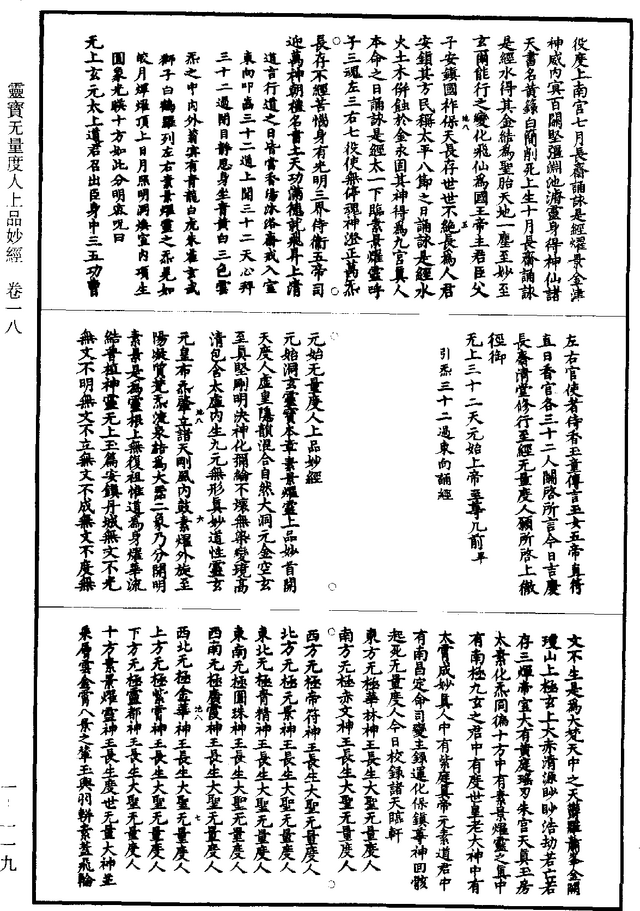 役度上南宮七月長齋誦詠是經燿景金津
神威內寘百關堅彊淵池濟靈身得神仙諸
天書名黃籙白簡削死上生十月長齋誦詠
是經水得其金結為聖胎天地一塵至妙至
玄爾能行之變化飛仙為國王帝主君臣父
子安鎮國祚保天長存世世不絕長為人君
安鎮其方民稱太平八節之日誦詠是經水
火土木併蝕於金永固其神得為九宮真人
本命之日誦詠是經太一下臨素景燿靈呼
子三魂左三右七役使無停魂神澄正萬炁
長存不經苦惱身有光明三界侍衛五帝司
迎萬神朝禮名書上天功滿德就飛昇上清
道言行道之日皆當香湯沐浴齋戒入室
東向叩齒三十二通上聞三十二天心拜
三十二過閉目靜思身坐青黃白三色雲
炁之中內外蓊冥有青龍白虎朱雀玄武
獅子白鶴羅列左右素景燿靈之炁晃如
皎月燀燿頂上日月照明洞煥室內項生
圓象光映十方如此分明密呪曰
无上玄元太上道君召出臣身中三五功曹
左右官使者侍香玉童傳言玉女五帝直符
直日香官各三十二人關啓所言今日吉慶
長齋清堂修行至經无量度人願所啓上徹
徑御
无上三十二天元始上帝至尊几前畢
引炁三十二過東向誦經
元始无量度人上品妙經
元始洞玄靈寶本章素景燿靈上品妙首開
天度人虛皇隱韻混合自然大洞元金空玄
至真堅剛明決神化彌綸不壞無染變境高
清包含太虛內生九元無形真妙道性靈玄
元皇布炁肇立諸天剛風內鼓素燿外旋至
陽凝質梵炁凌泉結為大器二象乃分開明
素景是為靈根上無復祖惟道為身燿華流
結普植神靈元上玉篇安鎮丹城無文不光
無文不明無文不立無文不成無文不度無
文不生是為大梵天中之天鬱羅蕭臺金闕
瓊山上極玄上大赤清源眇眇浩劫若亡若
存三燿帝宮大有黃庭瑤刃朱宮天真玉房
太素化炁同徧十方中有素景燿靈之真中
有南極九玄之君中有度世皇老大神中有
太霄成妙真人中有紫庭真帝元素道君中
有南昌定命司變主錄運化保鎮尊神回骸
起死无量度人今日校錄諸天臨軒
東方无極華林神王長生大聖无量度人
南方无極赤文神王長生大聖无量度人
西方无極帝符神王長生大聖无量度人
北方无極元景神王長生大聖无量度人
東北无極青精神王長生大聖无量度人
東南无極圓珠神王長生大聖无量度人
西南无極廣霞神王長生大聖无量度人
西北无極金華神王長生大聖无量度人
上方无極紫霄神王長生大聖无量度人
下方无極靈都神王長生大聖无量度人
十方素景燿靈神王長生度世无量大神並
乘層雲金霄八景之輦玉輿羽軿素蓋飛輪
靈寶无量度人上品妙經 卷一八
一：一一九